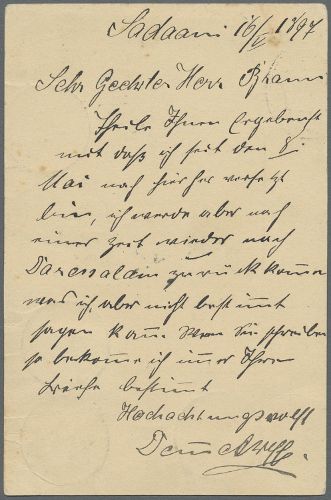 Sadaani 16/V 1897
Sehr Geehrter Herr
Theile Ihnen Ergebenst
mit daß ich seit den 8.
Mai nach hierher versetzt
bin, ich werde aber nach
einer Zeit wieder nach
Daressalam zurückkomme
was ich aber nicht bestimmt
sagen kann. Wen Sie schreiben
so bekomme ich immer Ihre
Briefe bestimmt
Hochachtungsvollst